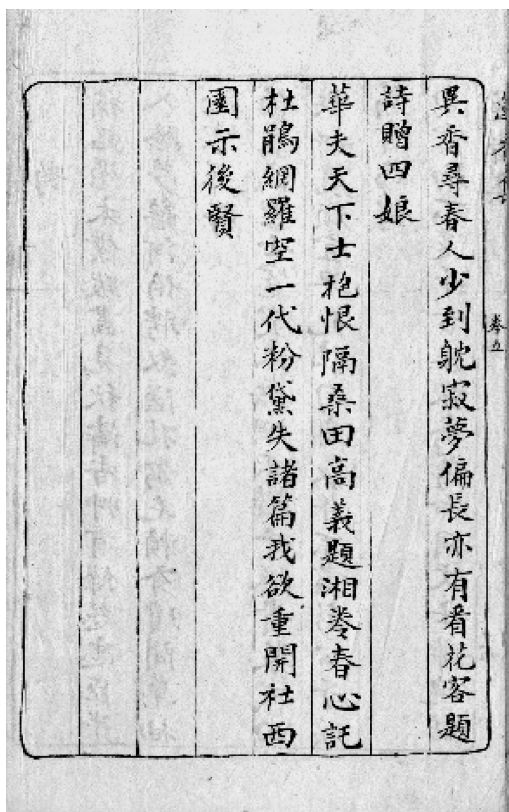 卷五
異香尋春人少到躭寂夢偏長亦有看花客題
詩贈四娘
華夫天下士抱恨隔桑田高義題湘卷春心託
杜鵑網羅空一代粉黛失諸篇我欲重開社西
園示後賢